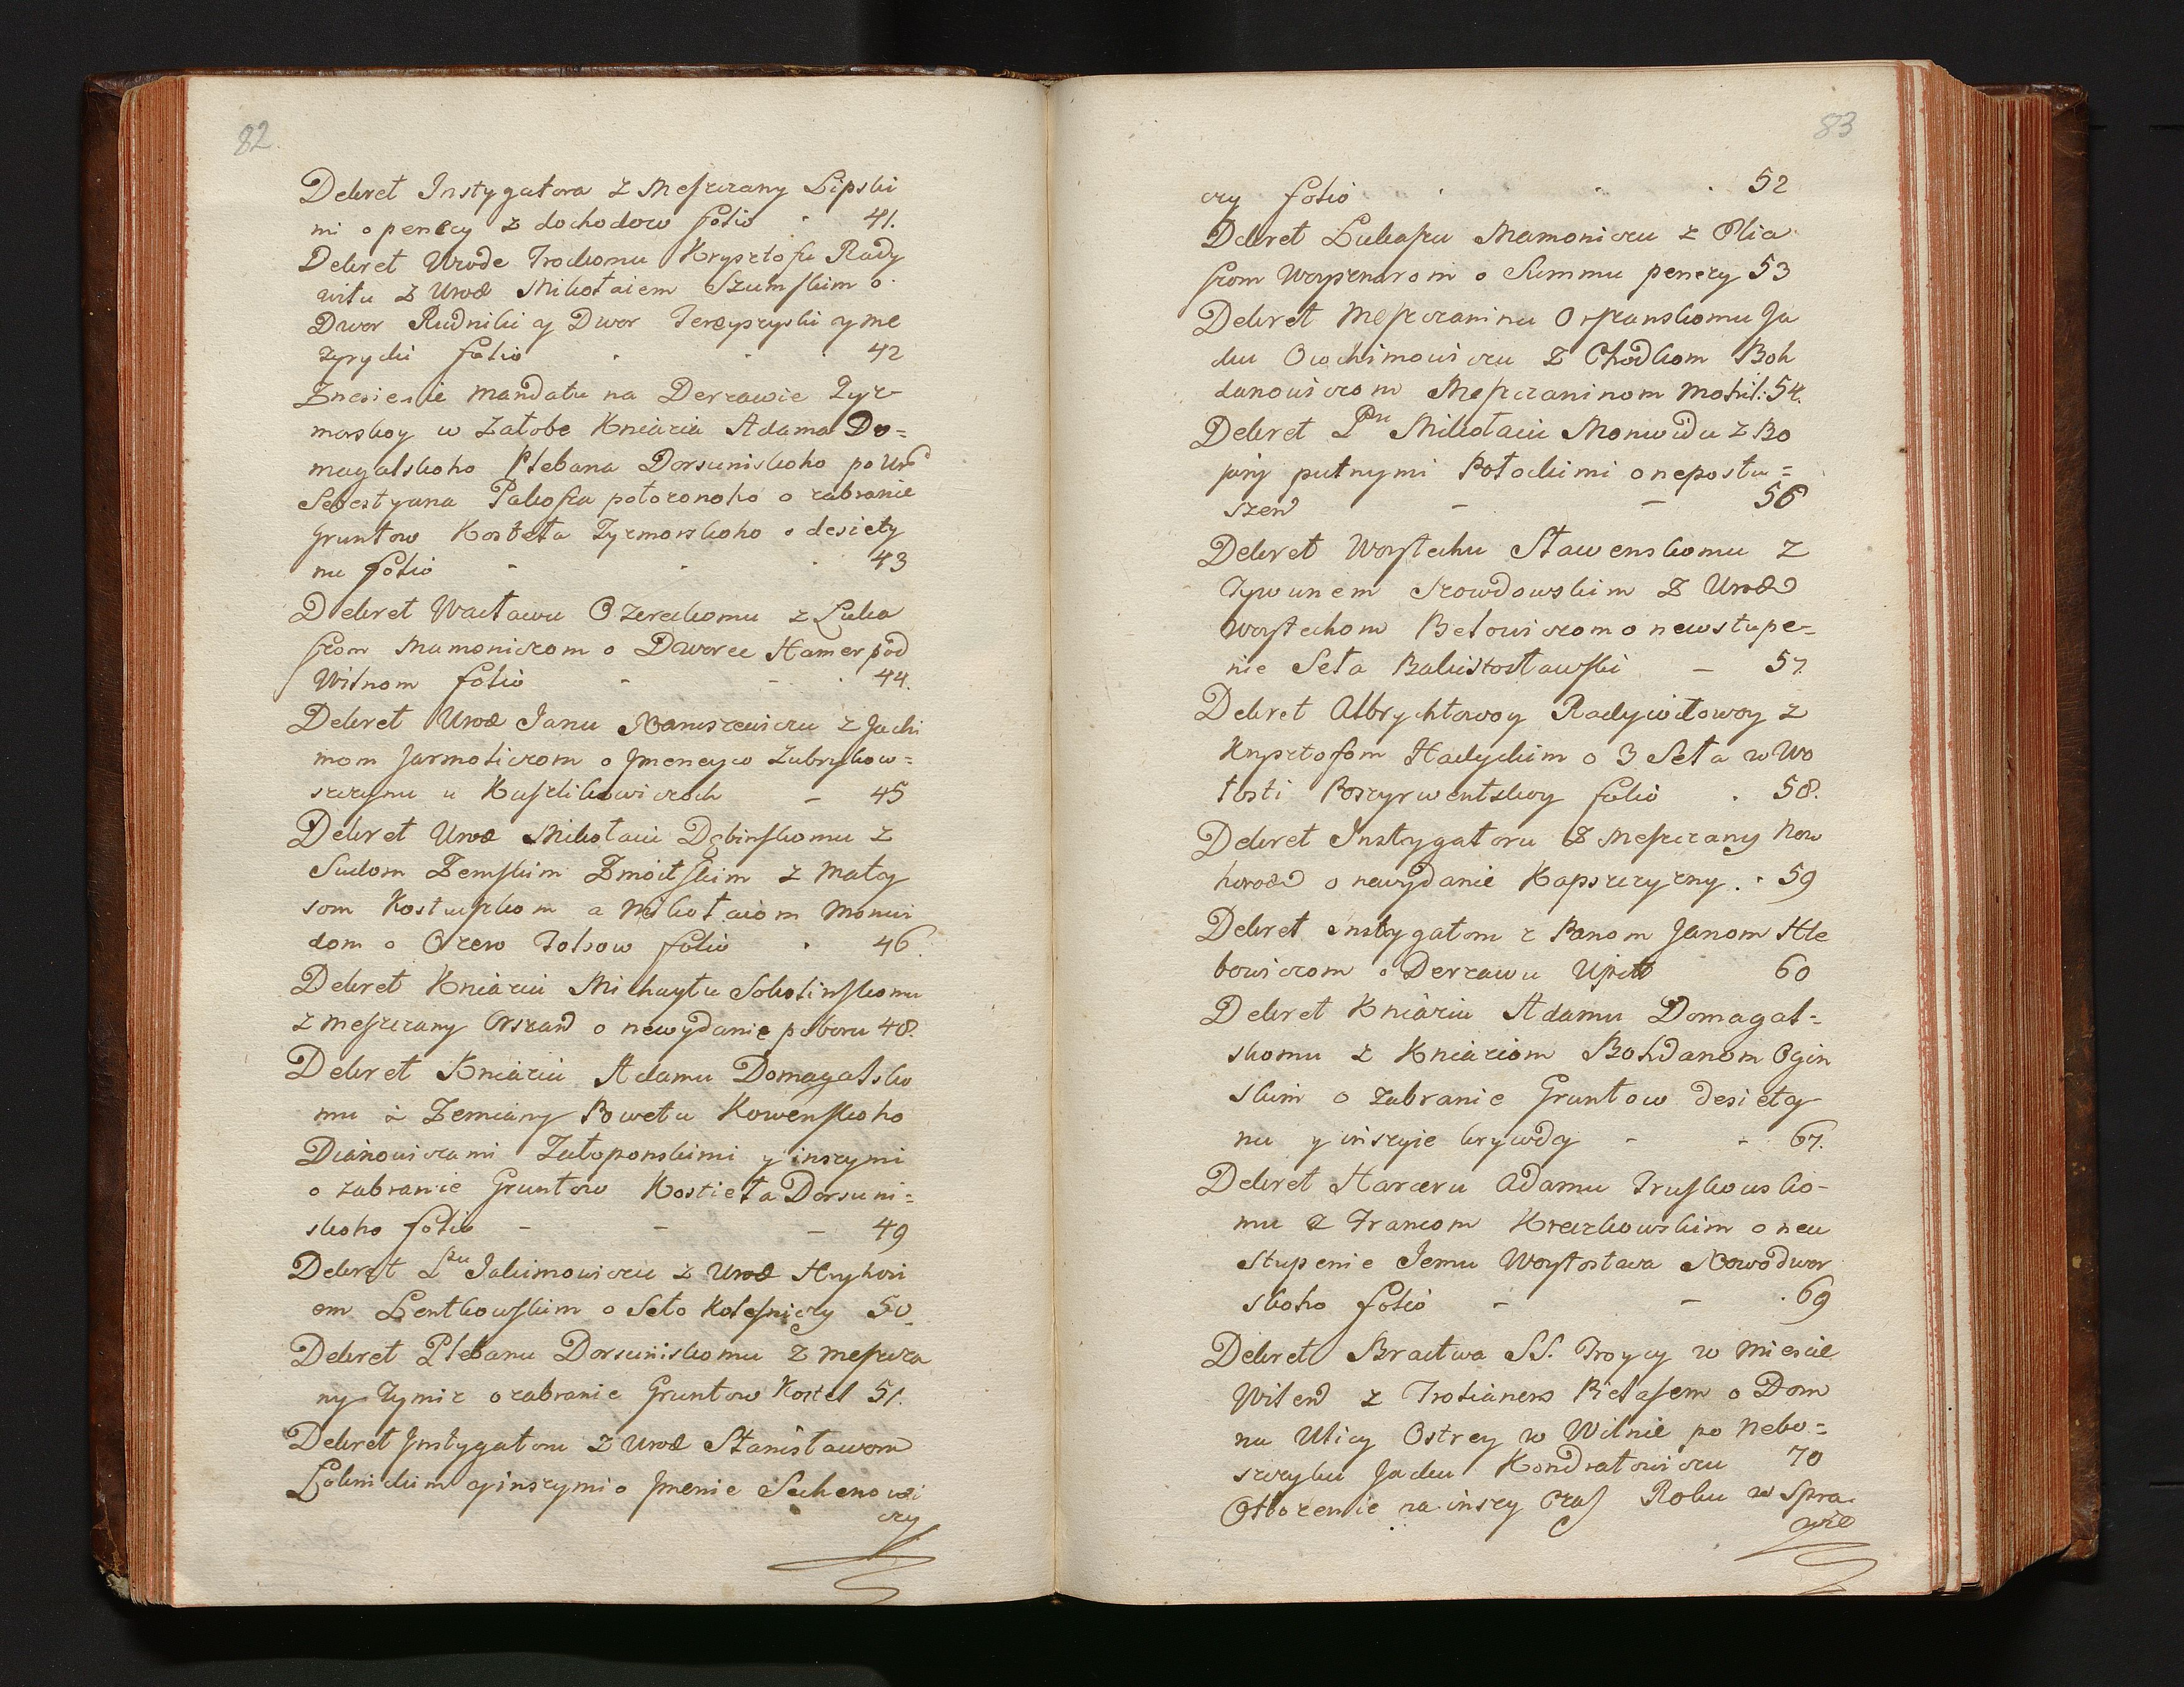 82
Dekret Instygatora z Meszczany Lipski
mi o penezy z dochodow folio 41.
Dekret Wrode Trockomu Krysztofu Rady
wilu z Urod Mikołaiem Szumskim o
Dwor Rudniki y Dwor Jerezyszyski y Me
rzyrycki folio 42
Zneseniie mandatu na Derzawie Zyz-
morskoy w Załobe Kniazia Adama Do=
magalskoho Plebana Dorsuniskoho po Uro
Sebestyana Pakosza położonoho o zabranie
Gruntow Kosteła Zyzmorskoho o desiety
nu folio 43
Dekret Wacławu Ozereckomu z Luka
szom Mamoniczom o Dworec Hamer pod
Wilnom folio 44.
Dekret Urod Janu Naruszewiczu z Jachi
mom Jarmoliczom o Jmeneyco Zubryskow=
szczyznu u Kuszlikowiczoch – 45
Dekret Urod Mikołaiu Dębinskomu z
Sudom Zemskim Zmoitskim z Maty
som Kostuszkom a Mikołaiom Monwi
dom o Ozero Tolsow folio 46
Dekret Kniaziu Michayłu Sokolinskomu
z meszczany Orszan o newydanie poboru 48.
Dekret Kniaziu Adamu Domagalsko
mu z Zemiany Powetu Kowenskoho
Dianowiczami Załoponskimi y inszymi
o zabranie Gruntow Kostieła Dorsuni=
skoho folio – – – 49
Dekret Pnu Jakimowiczu z Urod Hryhori
em Lentkowskim o Seło Kolesniczy 50
Dekret Plebanu Dorsuniskomu z meszcza
ny Zymiz o zabranie Gruntow Kostel 51.
Dekret Jnstygatoru z Urod Stanisławom
Łoknickim y inszymi o Jmenie Suchenowi
czy
83
czy folio 52
Dekret Lukaszu Mamoniczu z Elia
szom Woyznarom o Summu penezy 53
Dekret Meszczaninu Orszanskomu Ja
cku Ciochimowiczu z Chodkom Boh
danowiczom Meszczaninom Mohil: 54.
Dekret Pnu Mikołaiu Monwidu z Bo
jary putnymi Potockimi o neposłu=
szen – – 56
Dekret Woytechu Sławenskomu z
Tywunem Szowdowskim z Urod
Woytechom Bełowiczom o newstupe=
nie Seła Bakistosławski – 57.
Dekret Olbrychtowoy Radywiłowoy z
Krysztofom Hadyckim o 3 Seła w Wo
łosti Poszyrwentskoy folio 58.
Dekret Instygatoru z Meszczany Now
horod o newydanie Kapszczyzny 59
Dekret instygatoru z Panom Janom Hle
bowiczom o Derzawu Upit 60
Dekret Kniaziu Adamu Domagal=
skomu z Kniaziom Bohdanom Ogin
skim o zabranie Gruntow desiety
nu y inszyie krywdy – – 67.
Dekret Harceru Adamu Truskowsko-
mu z Francom Kreczkowskim o neu
stupenie Jemu Woytostwa Nowodwor
skoho folio – – 69
Dekret Bractwa SS. Troycy w Miescie
Wilen z Trotianem Pietasem o Dom
na Ulicy Ostrey w Wilnie po nebo=
szczyku Jacku Kondratowiczu 70
Otłozenie na inszy Czas Roku w Spra
wie